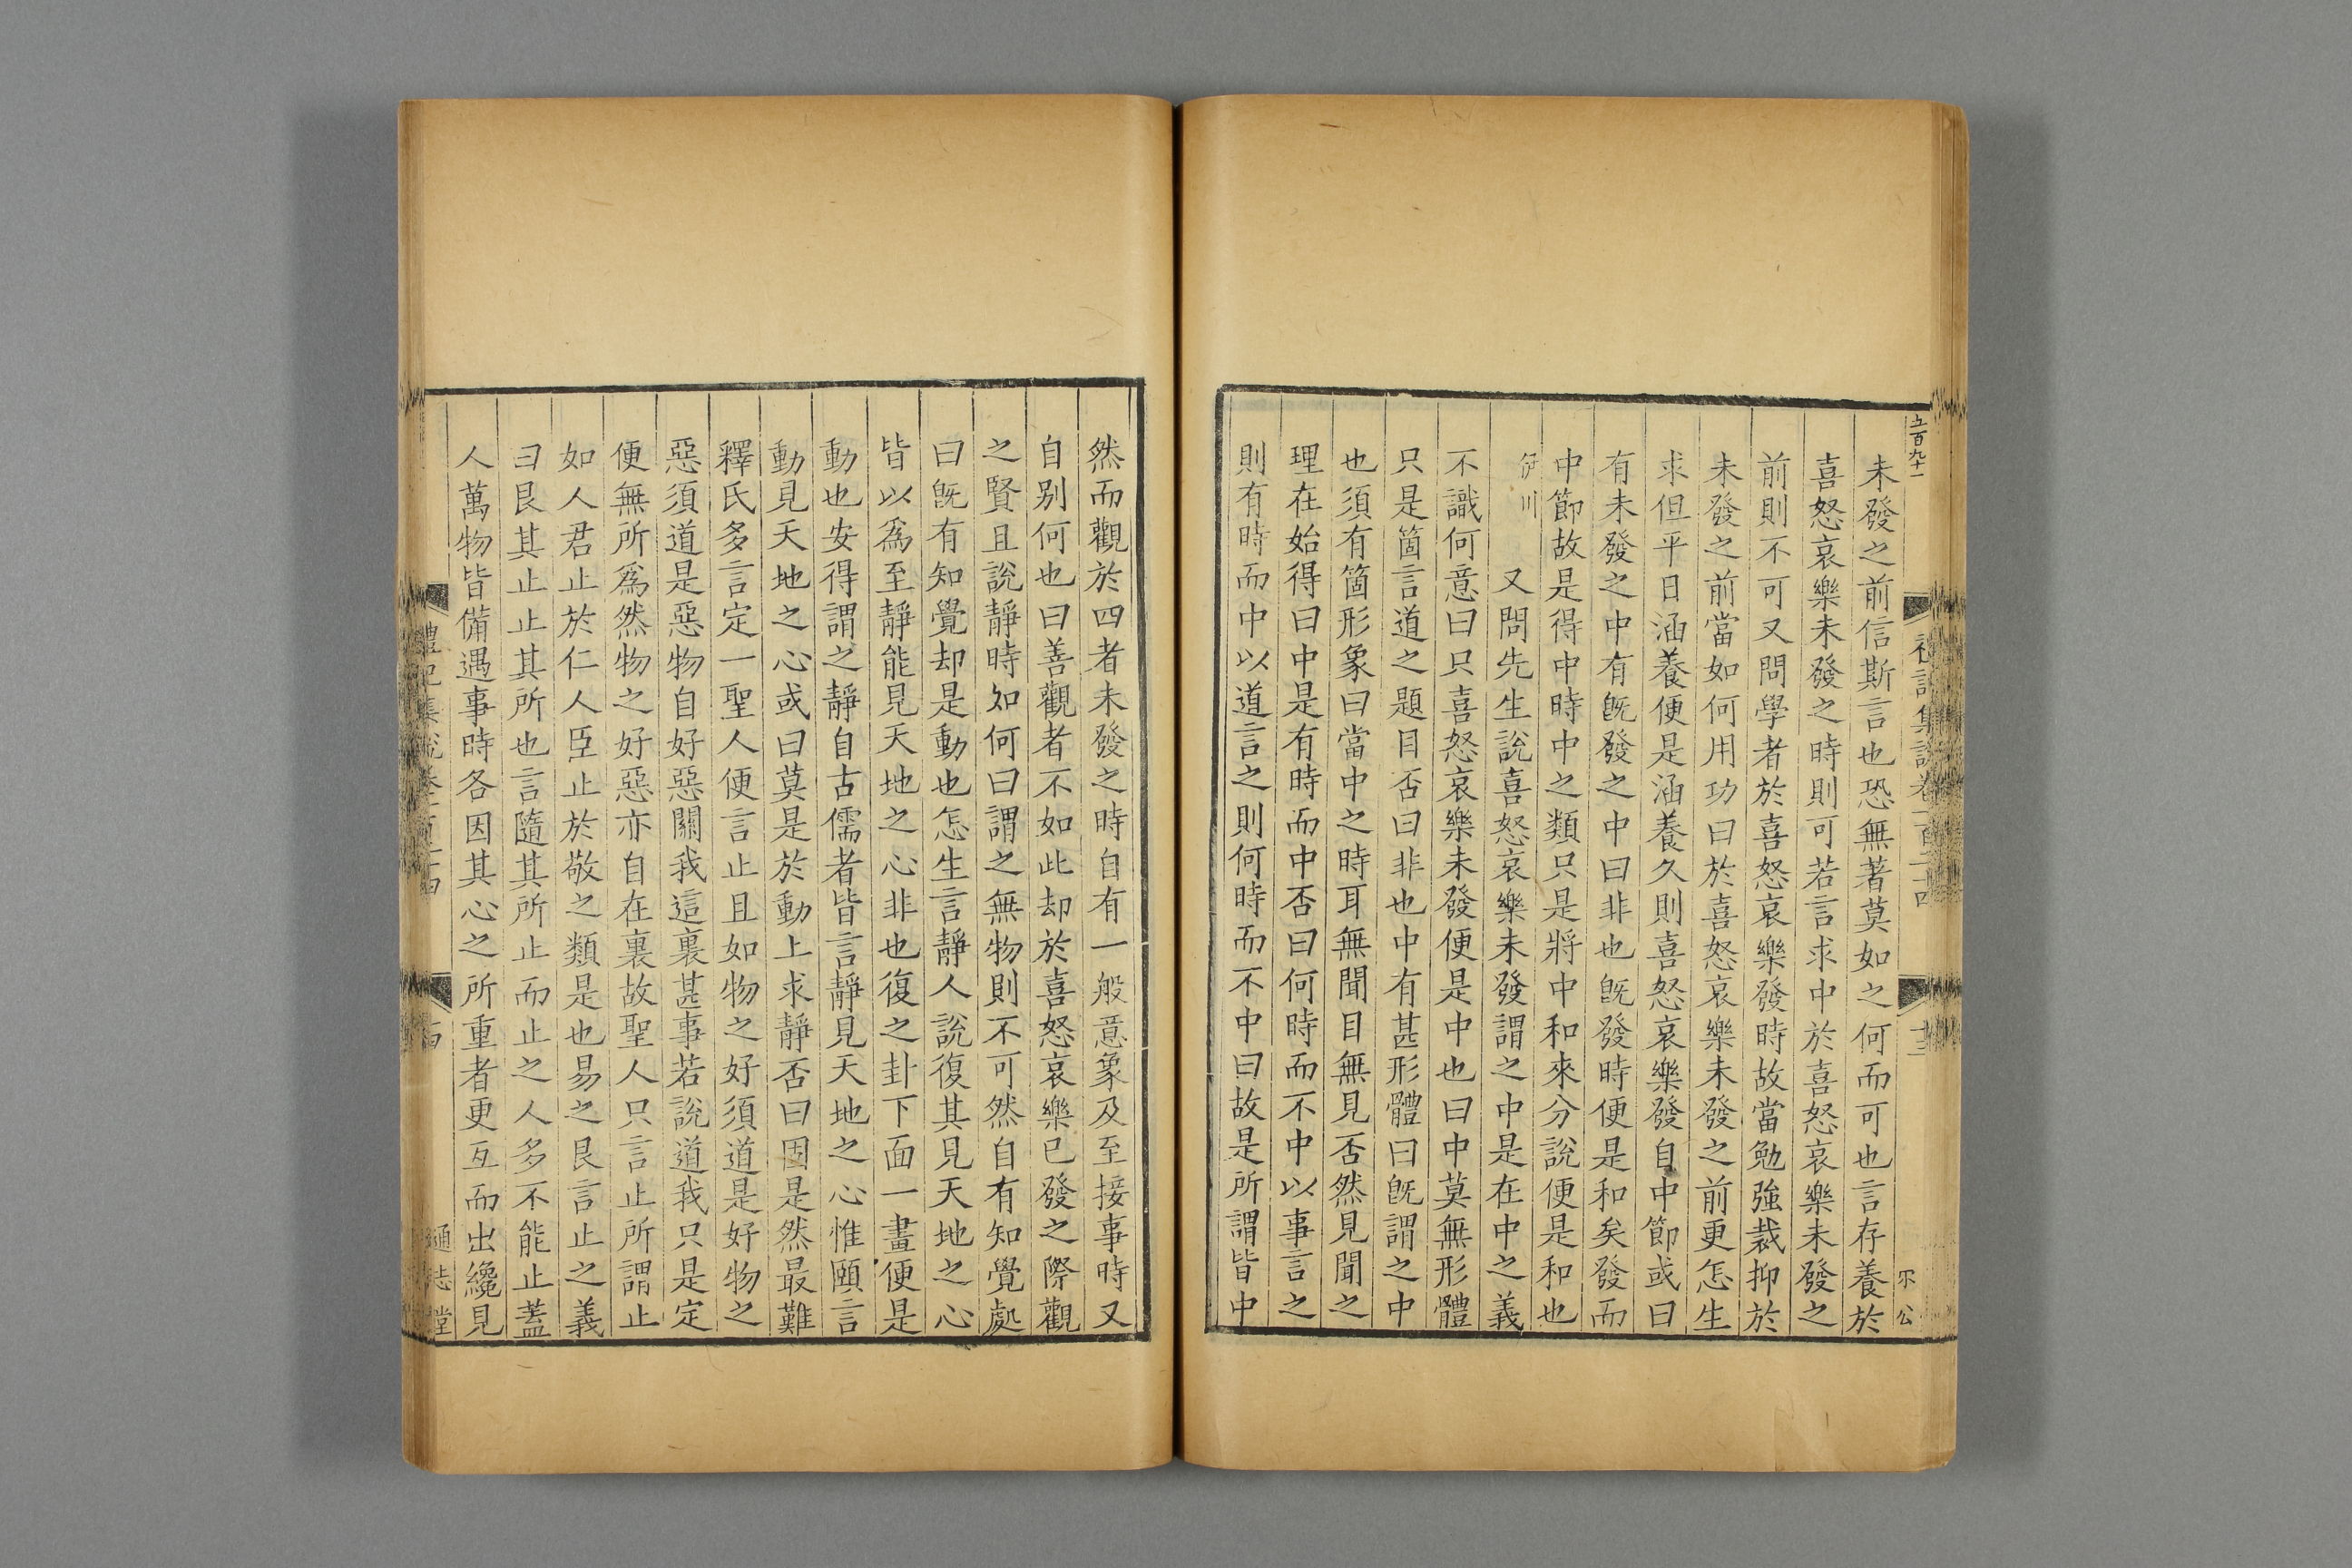 五百九十一
禮記集說卷一百二十四
十三
公
未發之前信斯言也恐無著莫如之何而可也言存養於
喜怒哀樂未發之時則可若言求中於喜怒哀樂未發之
前則不可又問學者於喜怒哀樂發時故當勉強裁抑於
未發之前當如何用功曰於喜怒哀樂未發之前更怎生
求但平日涵養便是涵養久則喜怒哀樂發自中節或曰
有未發之中有旣發之中曰非也旣發時便是和矣發而
中節故是得中時中之類只是將中和來分說便是和也
伊川
又問先生說喜怒哀樂未發謂之中是在中之義
不識何意曰只喜怒哀樂未發便是中也曰中莫無形體
只是箇言道之題目否曰非也中有甚形體曰旣謂之中
也須有箇形象曰當中之時耳無聞目無見否然見聞之
理在始得曰中是有時而中否曰何時而不中以事言之
則有時而中以道言之則何時而不中曰故是所謂皆中
然而觀於四者未發之時自有一般意象及至接事時又
自別何也曰善觀者不如此却於喜怒哀樂已發之際觀
之賢且說靜時如何曰謂之無物則不可然自有知覺處
曰旣有知覺却是動也怎生言靜人說復其見天地之心
皆以爲至靜能見天地之心非也復之卦下面一畫便是
動也安得謂之靜自古儒者皆言靜見天地之心惟頤言
動見天地之心或曰莫是於動上求靜否曰固是然最難
釋氏多言定一聖人便言止且如物之好須道是好物之
惡須道是惡物自好惡關我這裏甚事若說道我只是定
便無所爲然物之好惡亦自在裏故聖人只言止所謂止
如人君止於仁人臣止於敬之類是也易之艮言止之義
曰艮其止止其所也言隨其所止而止之人多不能止蓋
人萬物皆備遇事時各因其心之所重者更互而出纔見
禮記集說卷一百二十四
十四
通志堂